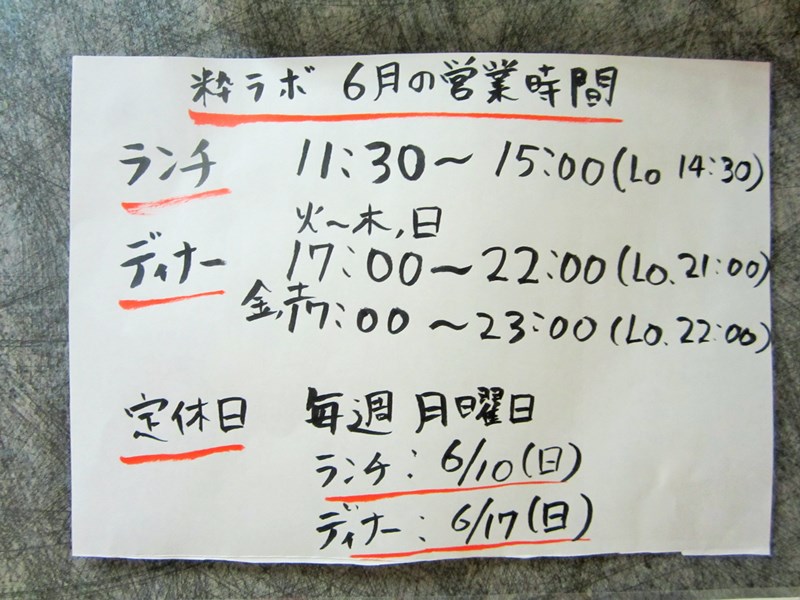 粋ラボ 6月の営業時間
ランチ 11:30〜15:00(Lo 14:30)
火〜木,日
ディナー 17:00〜22:00(Lo.21:00)
金,土17:00〜23:00(Lo.22:00)
定休日 毎週 月曜日
ランチ:6/10(日)
ディナー:6/17(日)